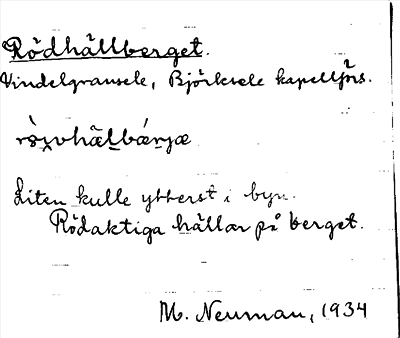 Rödhällberget.
Vindelgransele, Björksele kapellförs.
Liten kulle ytterst i byn.
Rödaktiga hällar på berget.
M. Neuman, 1934